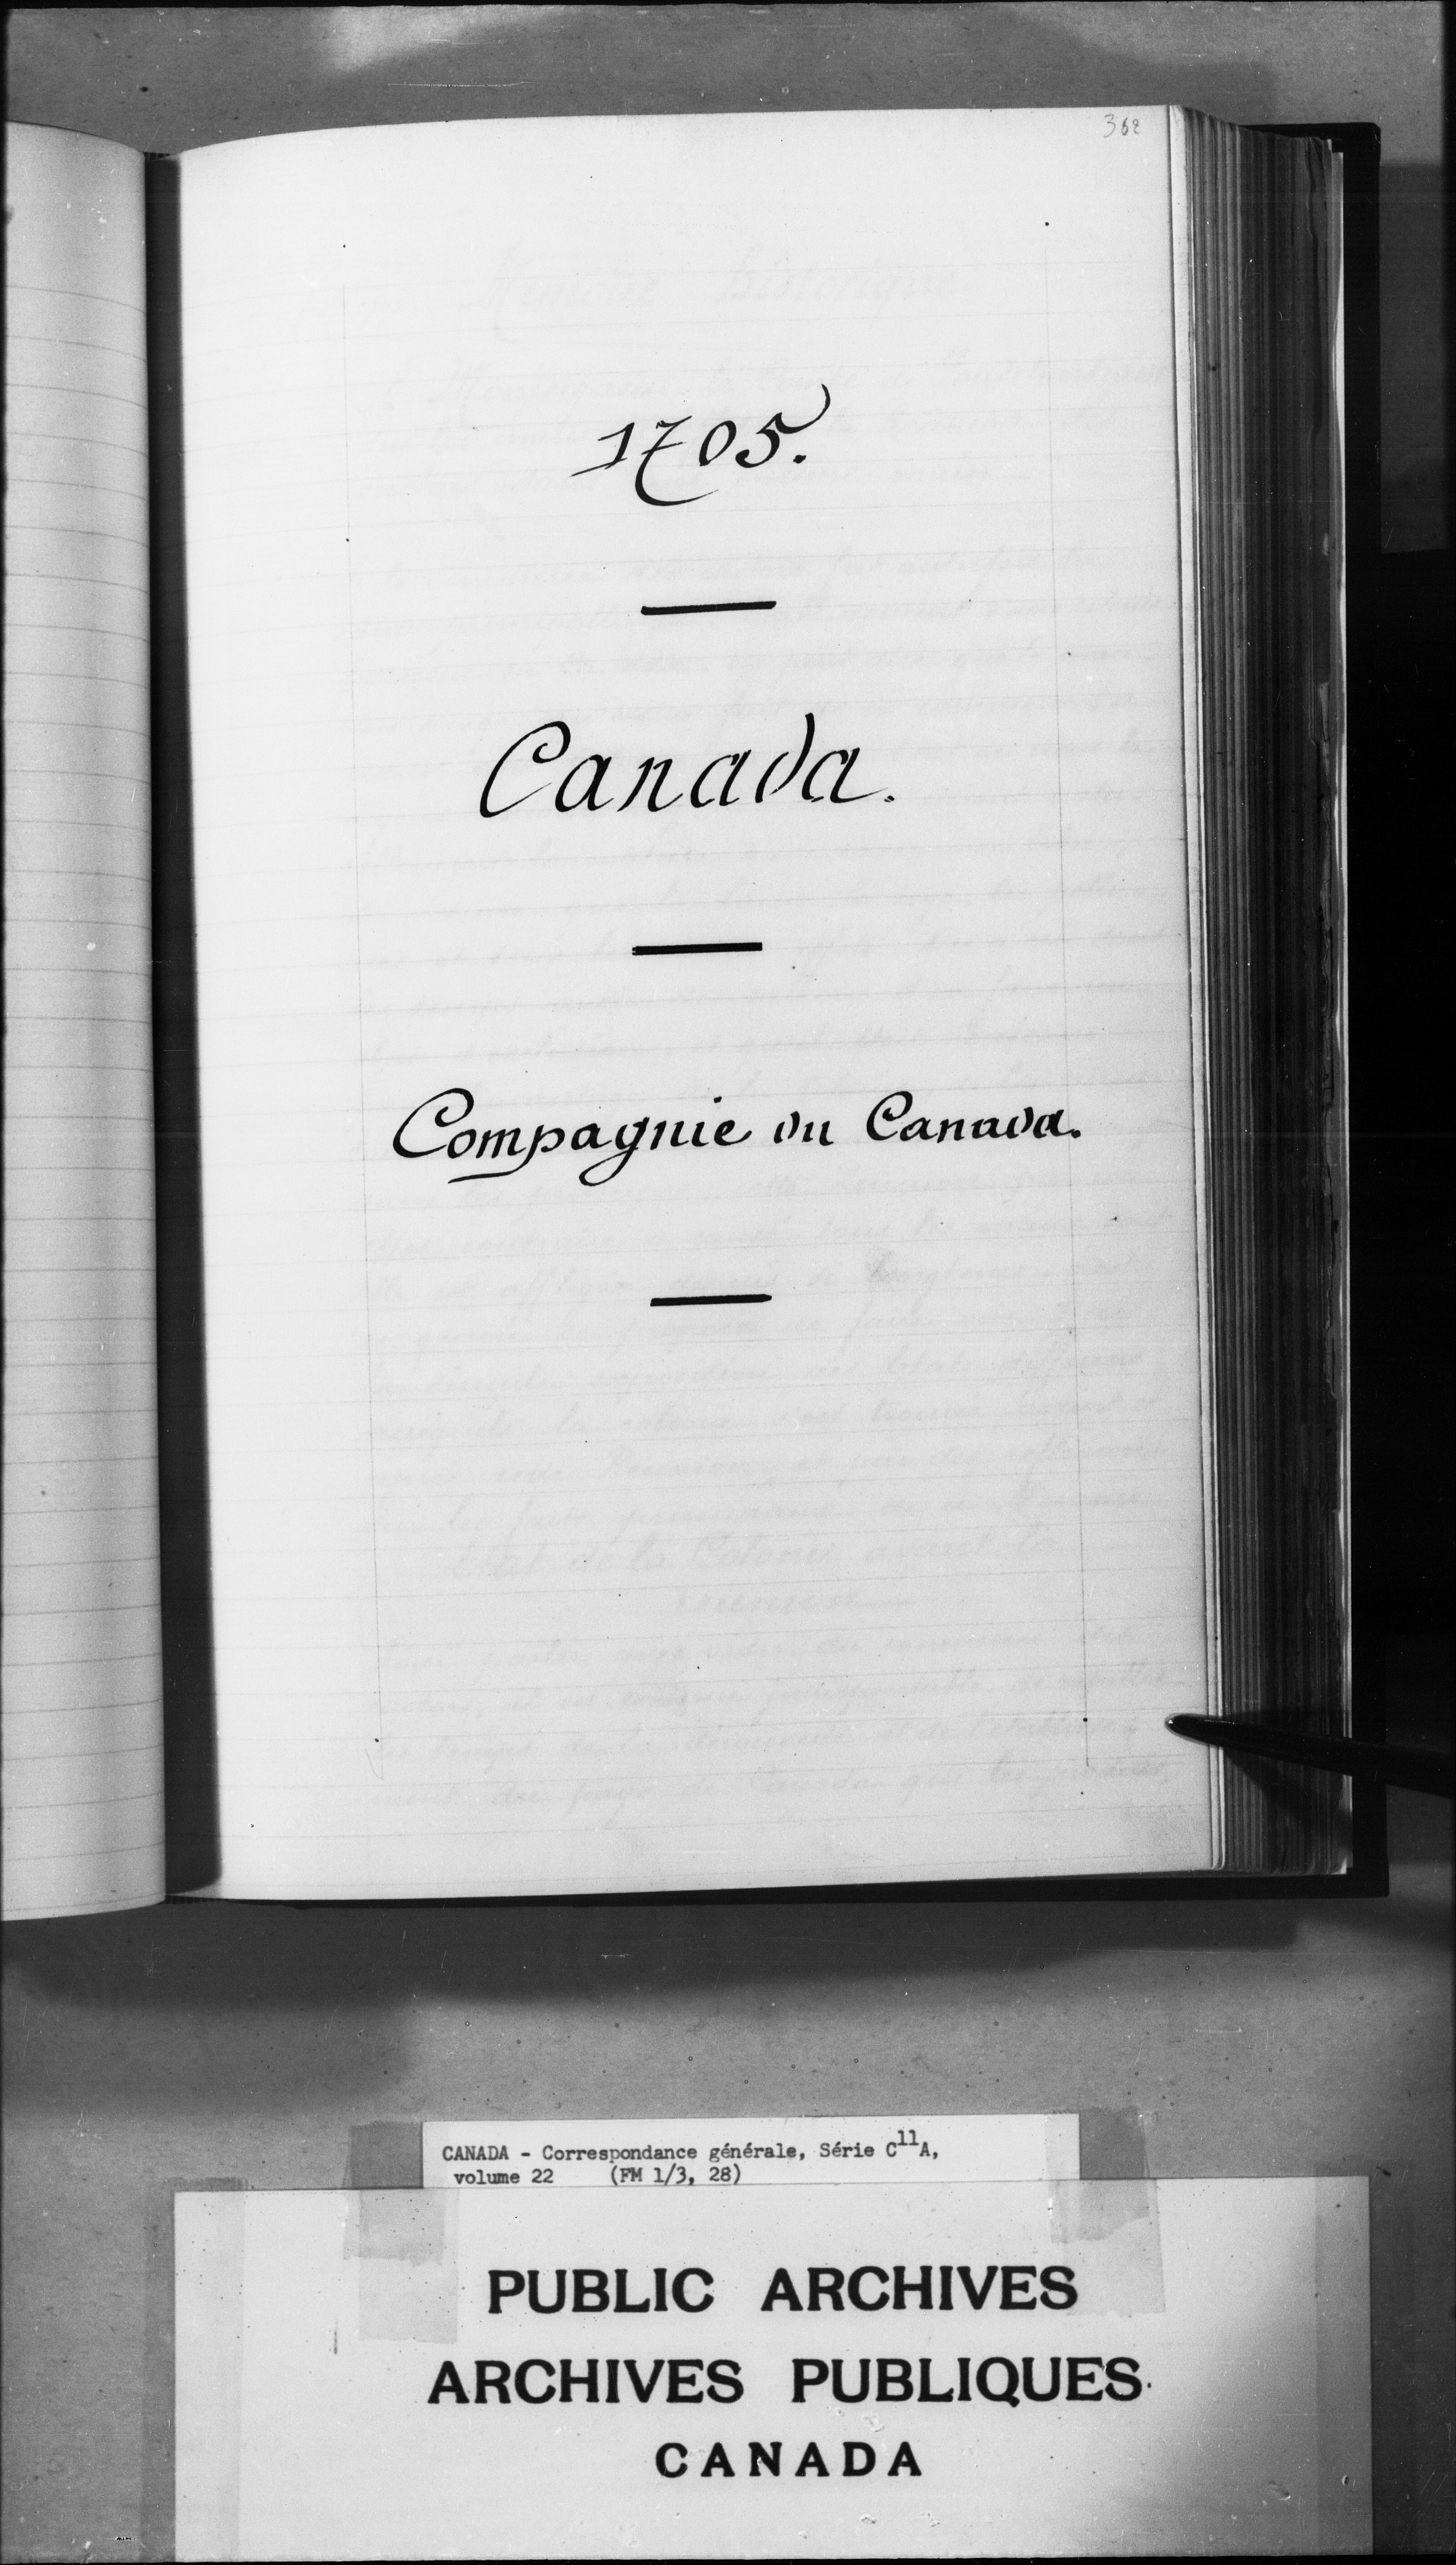 362
1705.
Canada.
Compagnie du Canada.
CANADA - Correspondance générale, Série C11A,
volume 22 (FM 1/3, 28)
PUBLIC ARCHIVES
ARCHIVES PUBLIQUES
CANADA